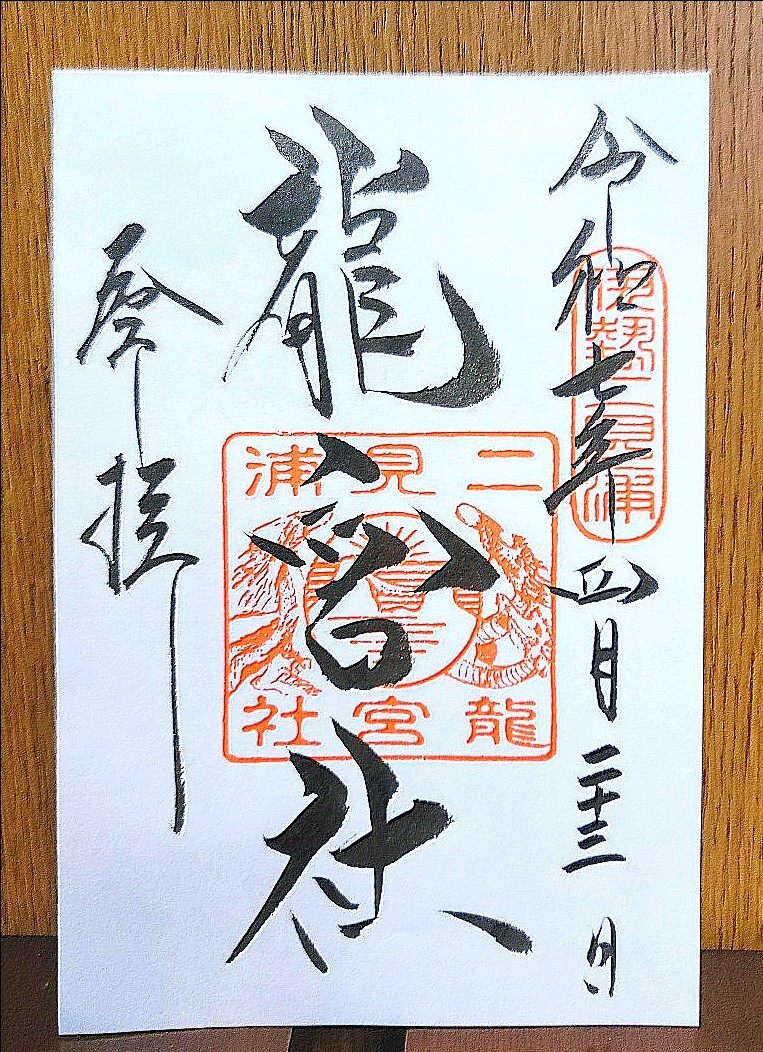 令和七年四月二十三日
伊勢二見浦
龍宮社
二見浦
龍宮社
参拝